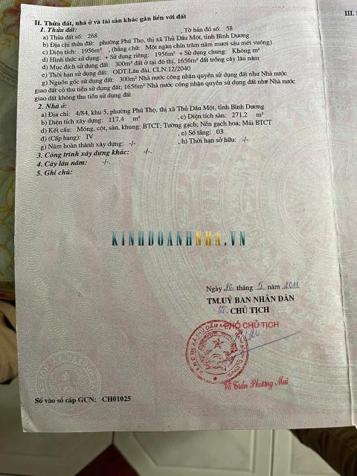 II. Thửa đất, nhà ở và tài sản khác gắn liền với đất
III.
1. Thửa đất:
a) Thửa đất số: 268 , Tờ bản đồ số: 58
b) Địa chỉ thửa đất: phường Phú Thọ, thị xã Thủ Dầu Một, tỉnh Bình Dương
c) Diện tích: 1956m² , (bằng chữ: Một ngàn chín trăm năm mươi sáu mét vuông)
d) Hình thức sử dụng: + Sử dụng riêng: 1956m² + Sử dụng chung: Không m²
đ) Mục đích sử dụng đất: 300m² đất ở tại đô thị, 1656m² đất trồng cây lâu năm
e) Thời hạn sử dụng đất: ODT:Lâu dài, CLN:12/2040
g) Nguồn gốc sử dụng đất: 300m² Nhà nước công nhận quyền sử dụng đất như Nhà nước
giao đất có thu tiền sử dụng đất; 1656m² Nhà nước công nhận quyền sử dụng đất như Nhà nước
giao đất không thu tiền sử dụng đất
2. Nhà ở:
a) Địa chỉ: 4/84, khu 5, phường Phú Thọ, thị xã Thủ Dầu Một, tỉnh Bình Dương
b) Diện tích xây dựng: 117,4 m² , c) Diện tích sàn: 271.2 m²
d) Kết cấu: Móng, cột, sàn, khung: BTCT; Tường gạch; Nền gạch hoa; Mái BTCT
đ) (Cấp hạng): IV , e) Số tầng: 03
g) Năm hoàn thành xây dựng: -/- h) Thời hạn sở hữu: -/-
3. Công trình xây dựng khác: -/-
4. Cây lâu năm: -/-
5. Ghi chú:
KINHDOANHNHA.VN
Ngày 26 tháng 5 năm 2011
TM.UỶ BAN NHÂN DÂN
CHỦ TỊCH
PHÓ CHỦ TỊCH
Trần Phương Mai
Số vào sổ cấp GCN: CH01025